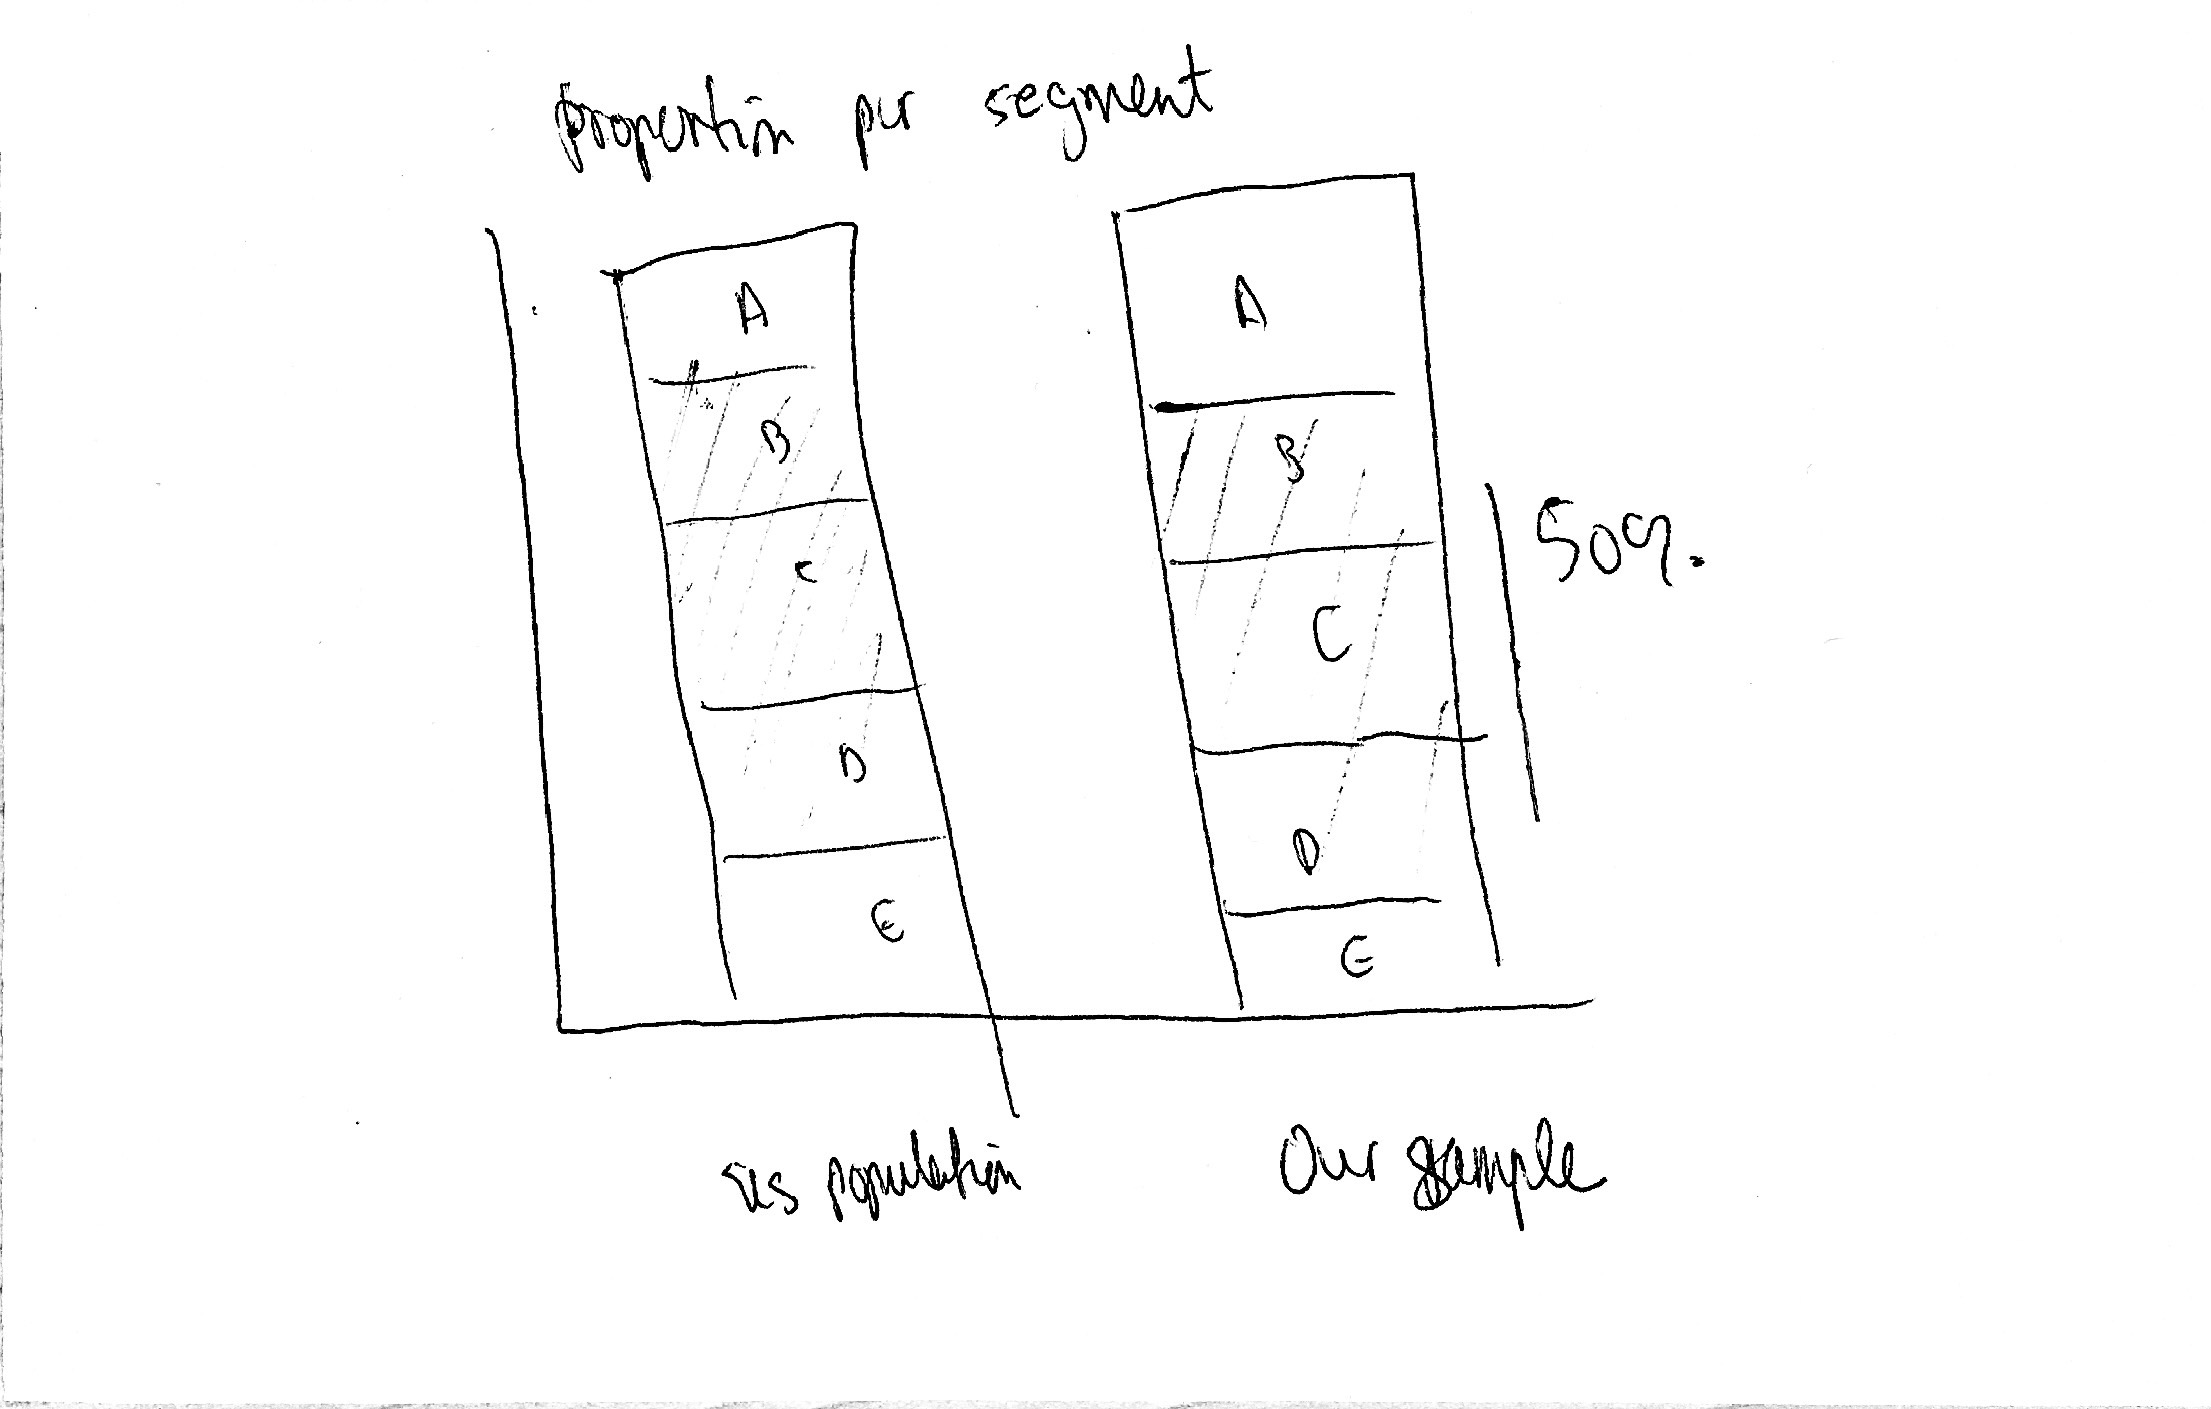 proportion per segment
A
B
C
D
E
A
B
C
D
E
50%
population
Our sample